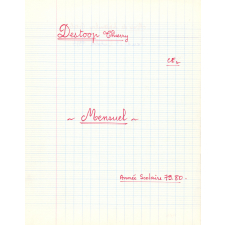 Destoop Thierry
CM2
~ Mensuel ~
Année Scolaire 79.80.